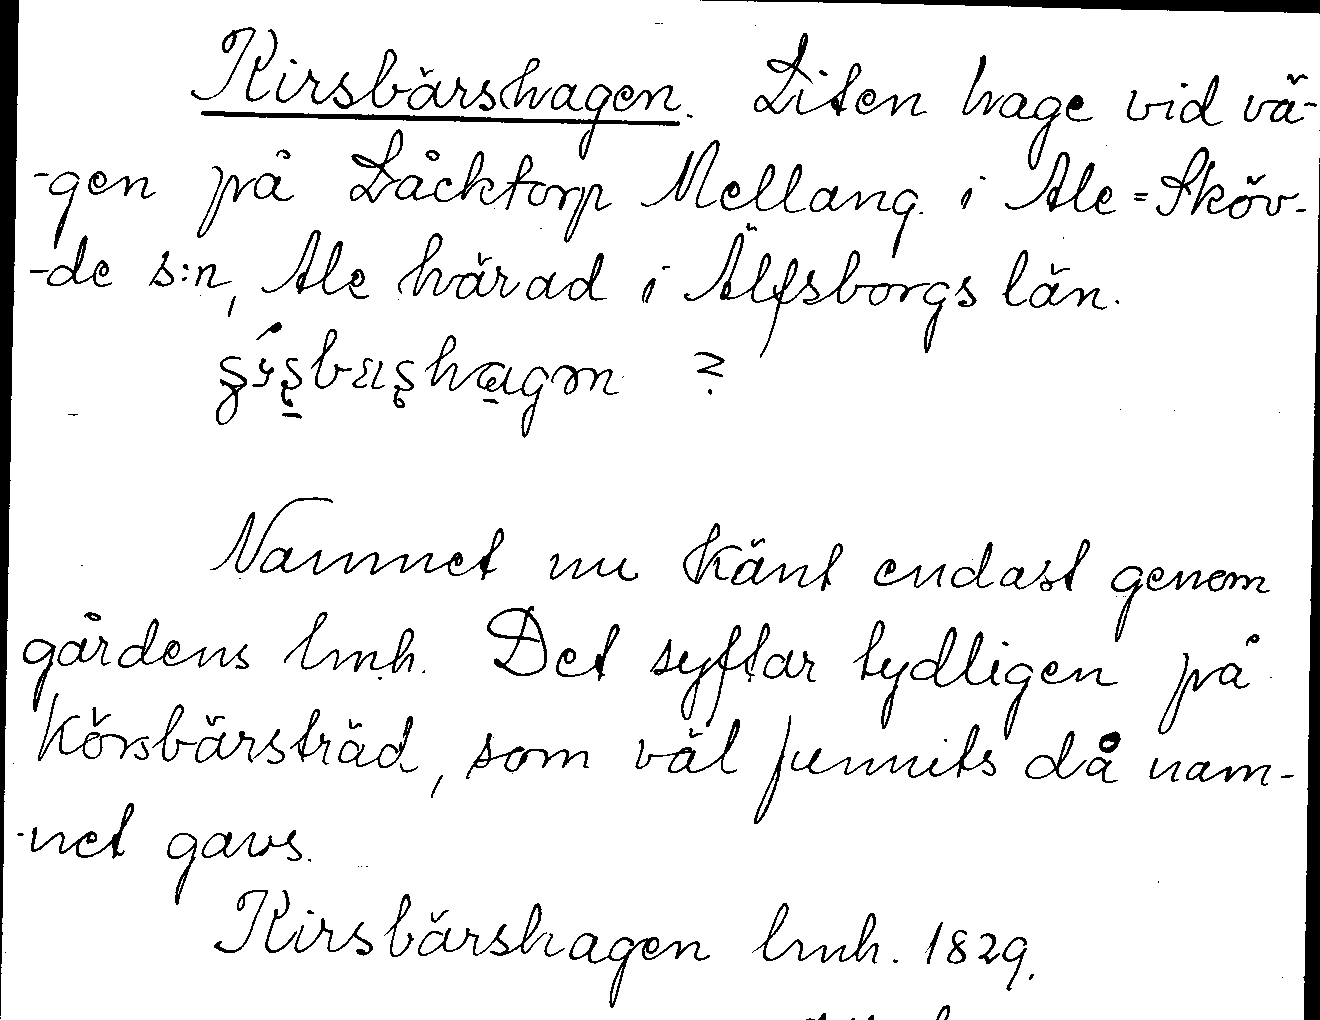 Kirsbärshagen. Liten hage vid vä-
-gen på Låcktorp Mellang. i Ale=Sköv-
-de s:n, Ale härad i Älfsborgs län.
?
Namnet nu känt endast genom
gårdens lmh. Det syftar tydligen på
körsbärsträd, som väl funnits då nam-
-net gavs.
Kirsbärshagen lmh. 1829.